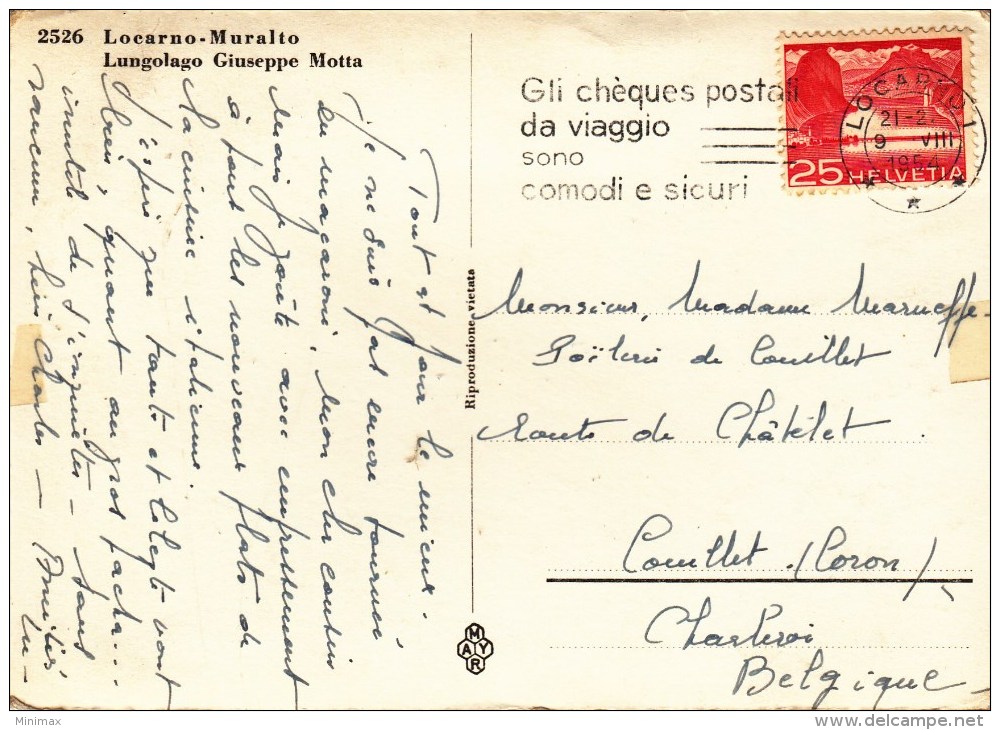 2526 Locarno-Muralto
Lungolago Giuseppe Motta
Tout est pour le mieux.
Je ne suis pas encore tourné
en macaroni, mon cher cousin
Mais je goûte avec empressement
à tout les nouveaux plats de
la cuisine italienne.
J'espère que tante et bébé vont
bien, quant au gros pacha...
inutile de s'inquiéter - sans
rancune, hein Charles - Amitiés
Riproduzione vietata
MAYR
Gli chèques postali
da viaggio
sono
comodi e sicuri
LOCARNO 1
21-2
9 VIII
1954
25 HELVETIA
Monsieur, Madame Marneffe-
Poëlerie de Couillet
Route de Châtelet
Couillet (Coron)
Charleroi
Belgique
Minimax
delcampe.net